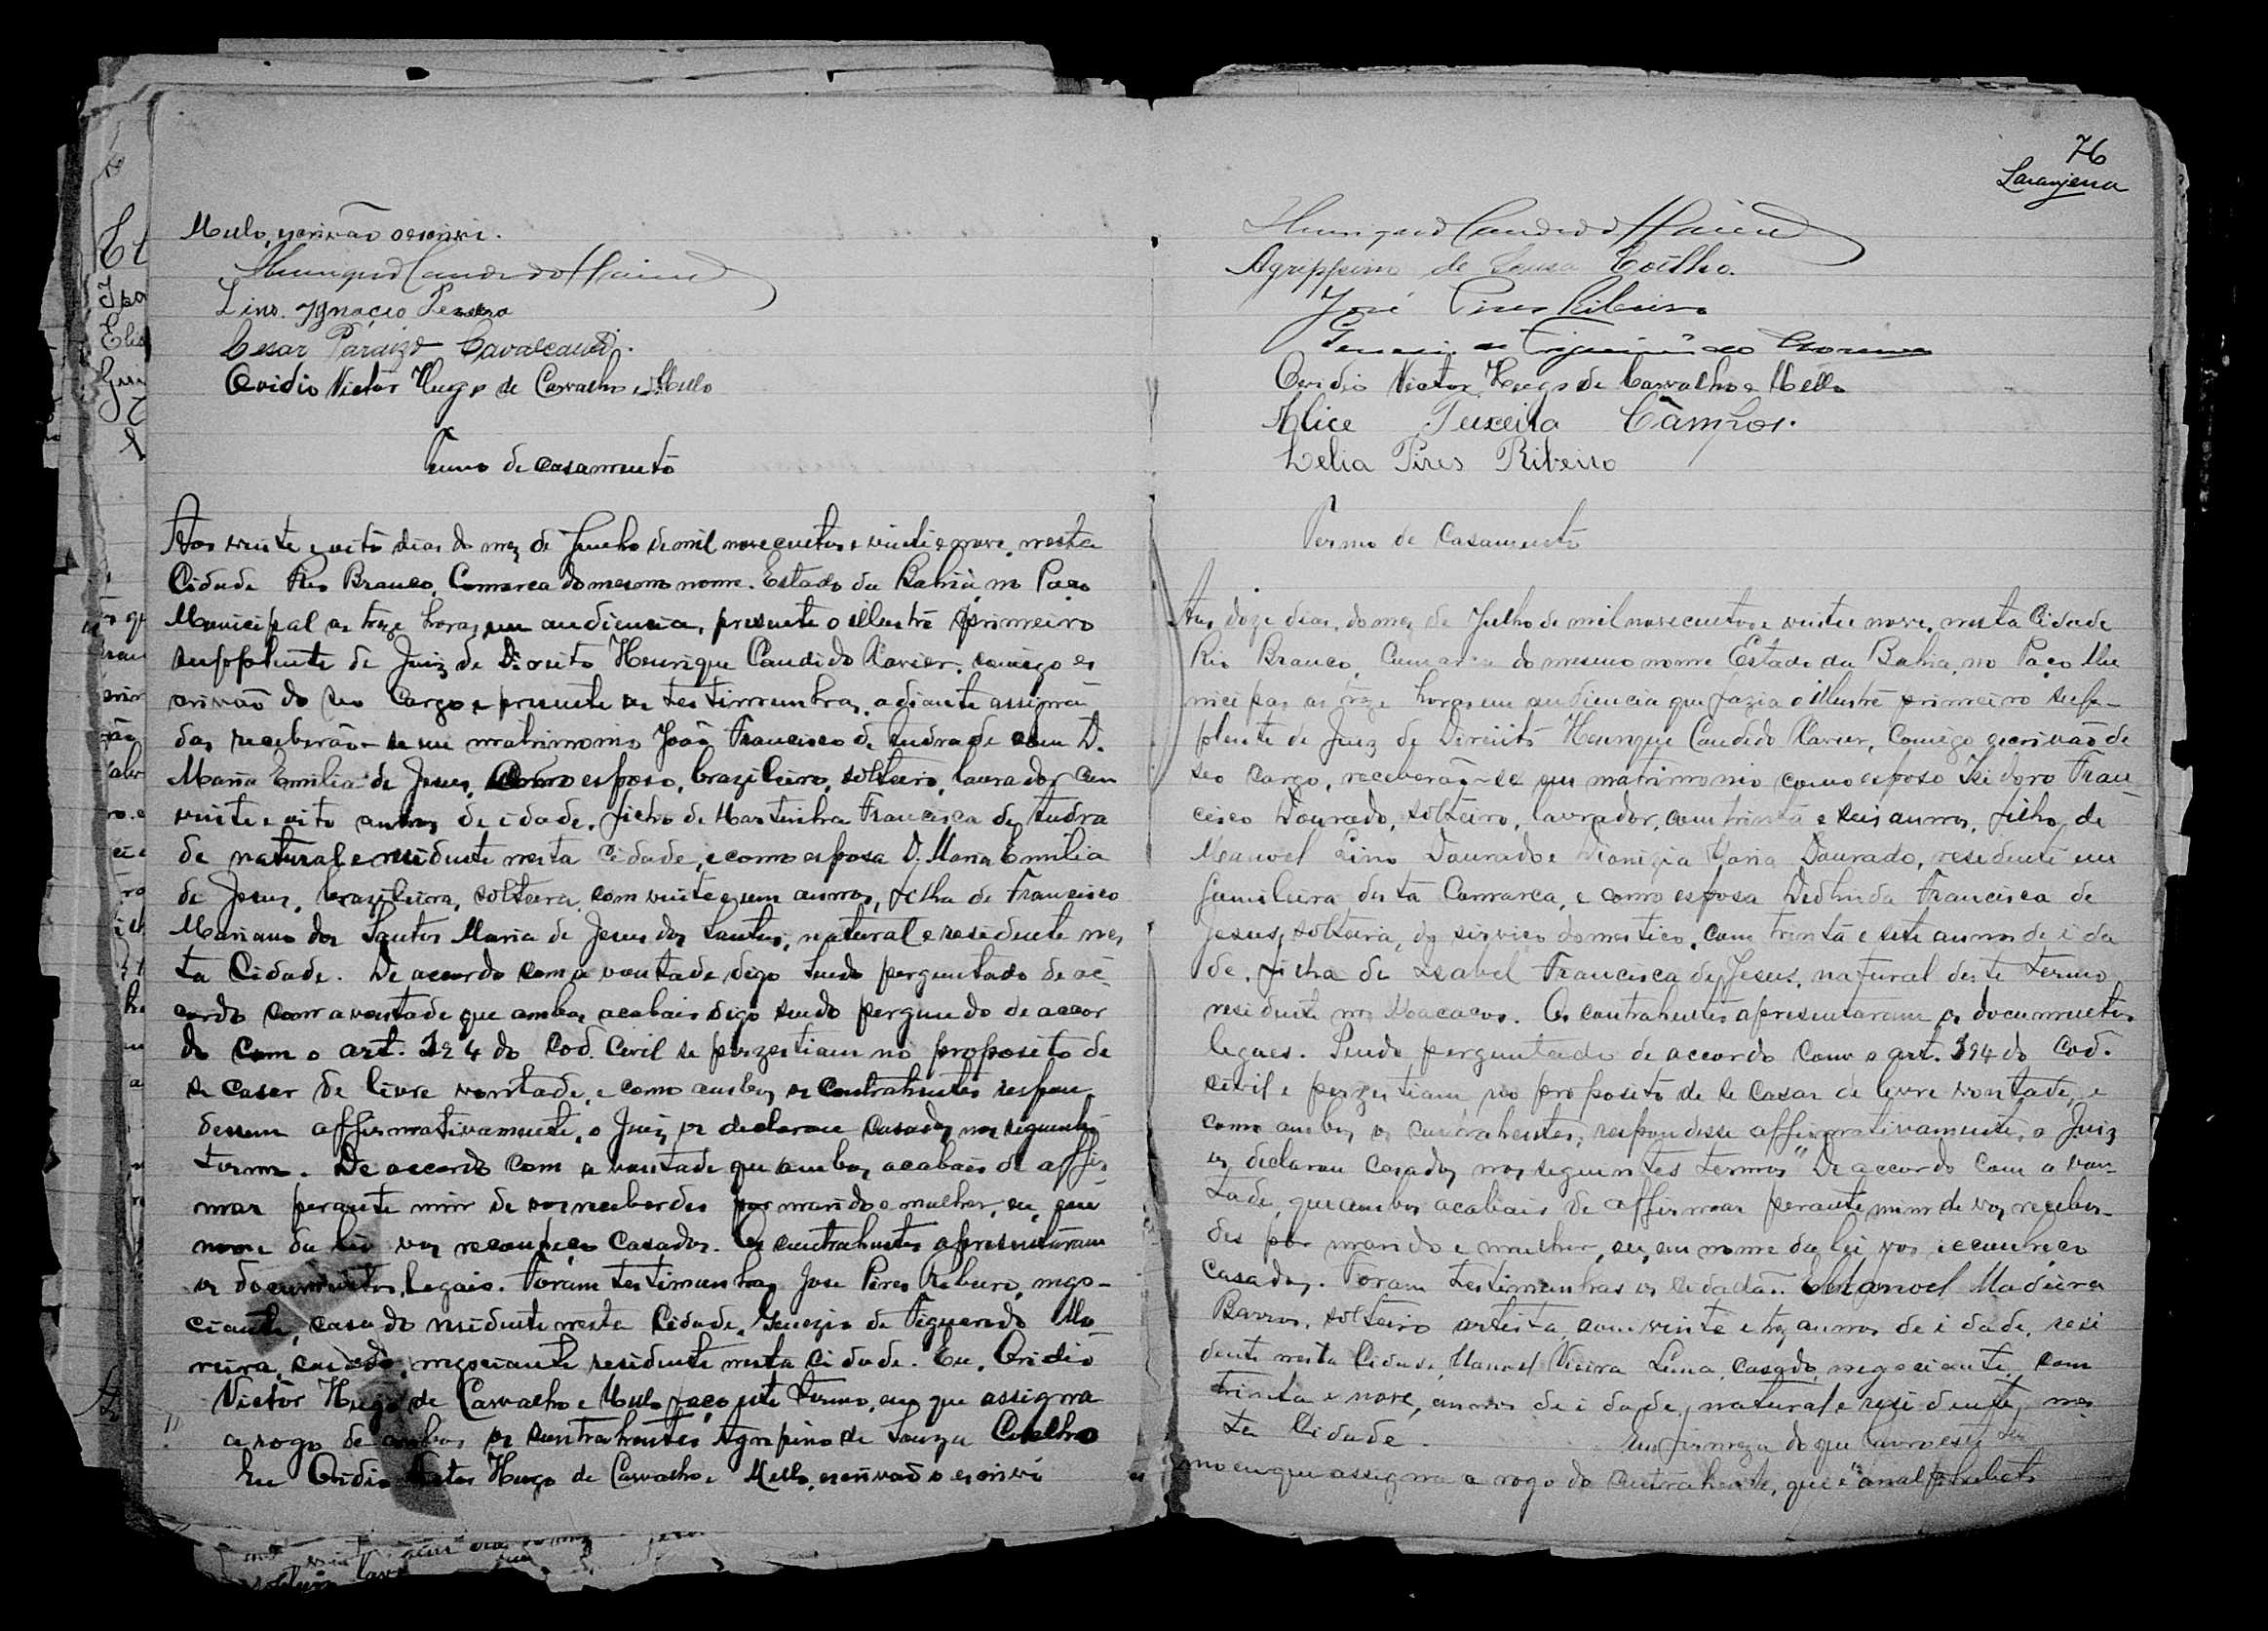 Mello, escrivão o escrevi.
Henrique Candido Xavier
Lino Ignacio Pereira
Cesar Paraizo Cavalcanti.
Ovidio Victor Hugo de Carvalho e Mello
Termo de casamento
Aos vinte e oito dias do mez de Junho de mil novecentos e vinte e nove, nesta
Cidade Rio Branco, Comarca do mesmo nome. Estado da Bahia, no Paço
Municipal as treze horas, em audiencia, presente o illustre primeiro
supplente de Juiz de Direito Henrique Candido Xavier, comigo es
crivão do seo Cargo e presente as testimunhas, adiante assigna
das, receberão-se em matrimonio João Francisco de Andrade com D.
Maria Emilia de Jesus, Como esposo, brazileiro, solteiro, lavrador com
vinte e oito annos de idade, filho de Martinha Francisca de Andra
de natural e residente nesta Cidade, e como esposa D. Maria Emilia
de Jesus, brazileira, solteira, com vinte e um annos, filha de Francisco
Mariano dos Santos Maria de Jesus dos Santos, natural e residente nes
ta Cidade. De accordo com a vontade digo Sendo perguntado de ac-
cordo com a vontade que ambos acabais digo sendo pergundo de accor
do com o art. 194 do Cod. Civil se perzestiam no proposito de
se casar de livre vontade, e como ambos os Contrahentes respon
dessem affirmativamente, o Juiz os declarou casados nos seguintes
termos. De accordo com a vontade que ambos acabais de affir
mar perante mim de vos receberdes por marido e mulher, eu, em
nome da lei vos reconheço Casados. Os contrahentes apresentaram
os documentos legais. Foram testimunhas Jose Pires Ribeiro, nego-
ciante, casado residente nesta Cidade, Genezio de Figueredo Mo
reira, casado, negociante residente nesta cidade. Eu, Ovidio
Victor Hugo de Carvalho e Mello faço este termo, em que assigna
a rogo de ambos os contrahentes Agrapino de Souza Coelho
Eu Ovidio Victor Hugo de Carvalho e Mello, escrivão o escrivi
76
Laranjeira
Henrique Candido Xavier
Agrippino de Sousa Coêlho.
José Pires Ribeiro
Ovidio Victor Hugo de Carvalho e Mello
Alice Teixeita Câmpos.
Lelia Pires Ribeiro
Termo de Casamento
Aos doze dias, do mez de Julho de mil novecentos e vinte e nove, nesta Cidade
Rio Branco, Comarca do mesmo nome Estado da Bahia, no Paço Mu
nicipal, as treze horas em audiencia que fazia o illustre primeiro sup-
plente de Juiz de Direito Henrique Candido Xavier, Comigo escrivão de
seo cargo, receberão-se em matrimonio como esposo Izidoro Fran
cisco Dourado, solteiro, lavrador, com trinta e seis annos, filho de
Manoel Lino Dourado e Dionizia Maria Dourado, residente em
Gamileira desta Comarca, e como esposa Francisca de
Jesus, solteira, de serviço domestico, com trinta e sete annos de ida
de, filha de Izabel Francisca de Jesus, natural deste termo
residente nos Macacos. Os contrahentes apresentaram os documentos
legaes. Sendo perguntado de accordo com o art. 194 do Cod.
civil e perzestiam no proposito de se casar de livre vontade, e
como ambos os contrahentes, respondesse affirmativamente, o Juiz
os declarou casados nos seguintes termos "De accordo com a von-
tade, que ambos acabais de affirmar perante mim de vos receber-
des por marido e mulher, eu, em nome da lei vos reconheço
casados. Foram testimunhas os cidadãos Manoel Madeira
Barros, solteiro artista, com vinte e tres annos de idade, resi
dente nesta Cidade, Manoel Vieira Lima, casado, negociante, com
trinta e nove, annos de idade, natural e residente, nes
ta Cidade. Em firmeza do que lavro este ter
mo em que assigna a rogo do contrahente, que é analphabeto